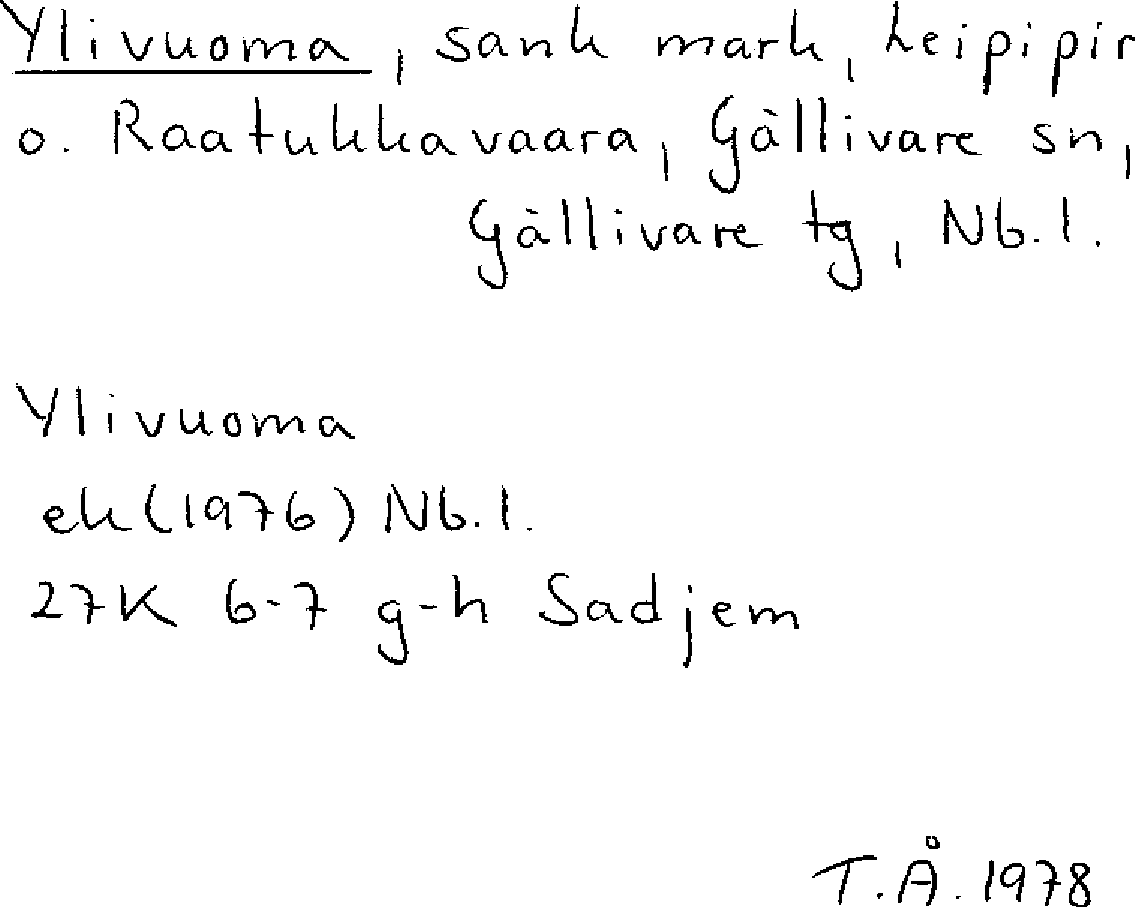 Ylivuoma, sank mark, Leipipir
o. Raatukkavaara, Gällivare sn,
Gällivare tg, Nb.l.
Ylivuoma
ek (1976) Nb.l.
27K 6-7 g-h Sadjem
T.Å. 1978